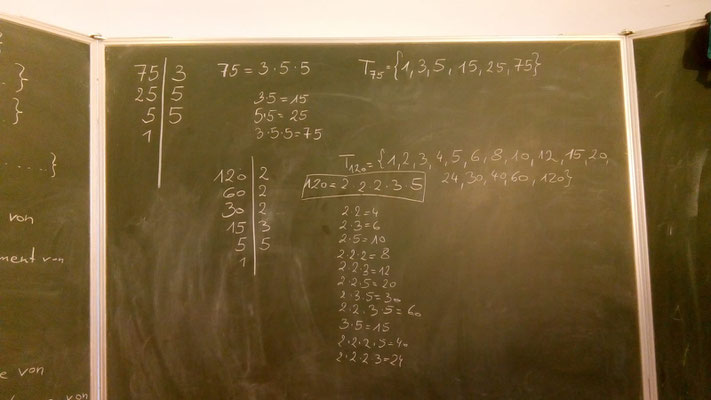 ...}
}
.....}
von
ment von
von
75 | 3
25 | 5
5 | 5
1 |
75 = 3·5·5
3·5 = 15
5·5 = 25
3·5·5 = 75
T₇₅ = {1, 3, 5, 15, 25, 75}
120 | 2
60 | 2
30 | 2
15 | 3
5 | 5
1 |
T₁₂₀ = {1, 2, 3, 4, 5, 6, 8, 10, 12, 15, 20,
24, 30, 40, 60, 120}
120 = 2·2·2·3·5
2·2 = 4
2·3 = 6
2·5 = 10
2·2·2 = 8
2·2·3 = 12
2·2·5 = 20
2·3·5 = 30
2·2·3·5 = 60
3·5 = 15
2·2·2·5 = 40
2·2·2·3 = 24